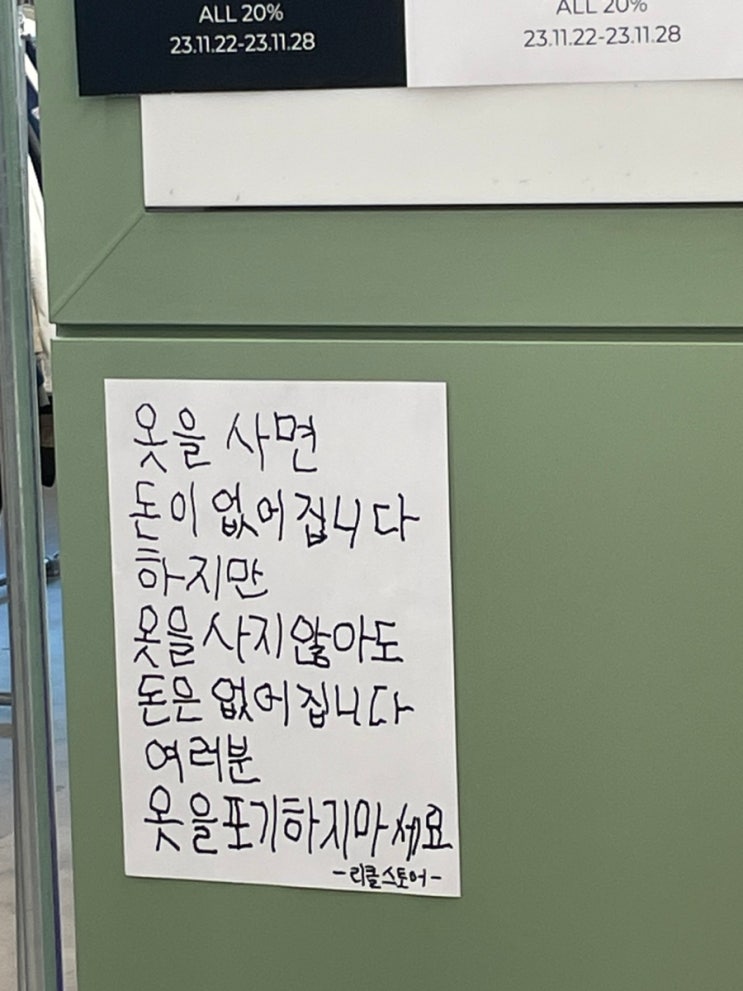 ALL 20%
23.11.22-23.11.28
ALL 20%
23.11.22-23.11.28
옷을 사면
돈이 없어집니다
하지만
옷을 사지 않아도
돈은 없어집니다
여러분
옷을 포기하지마세요
-리클스토어-